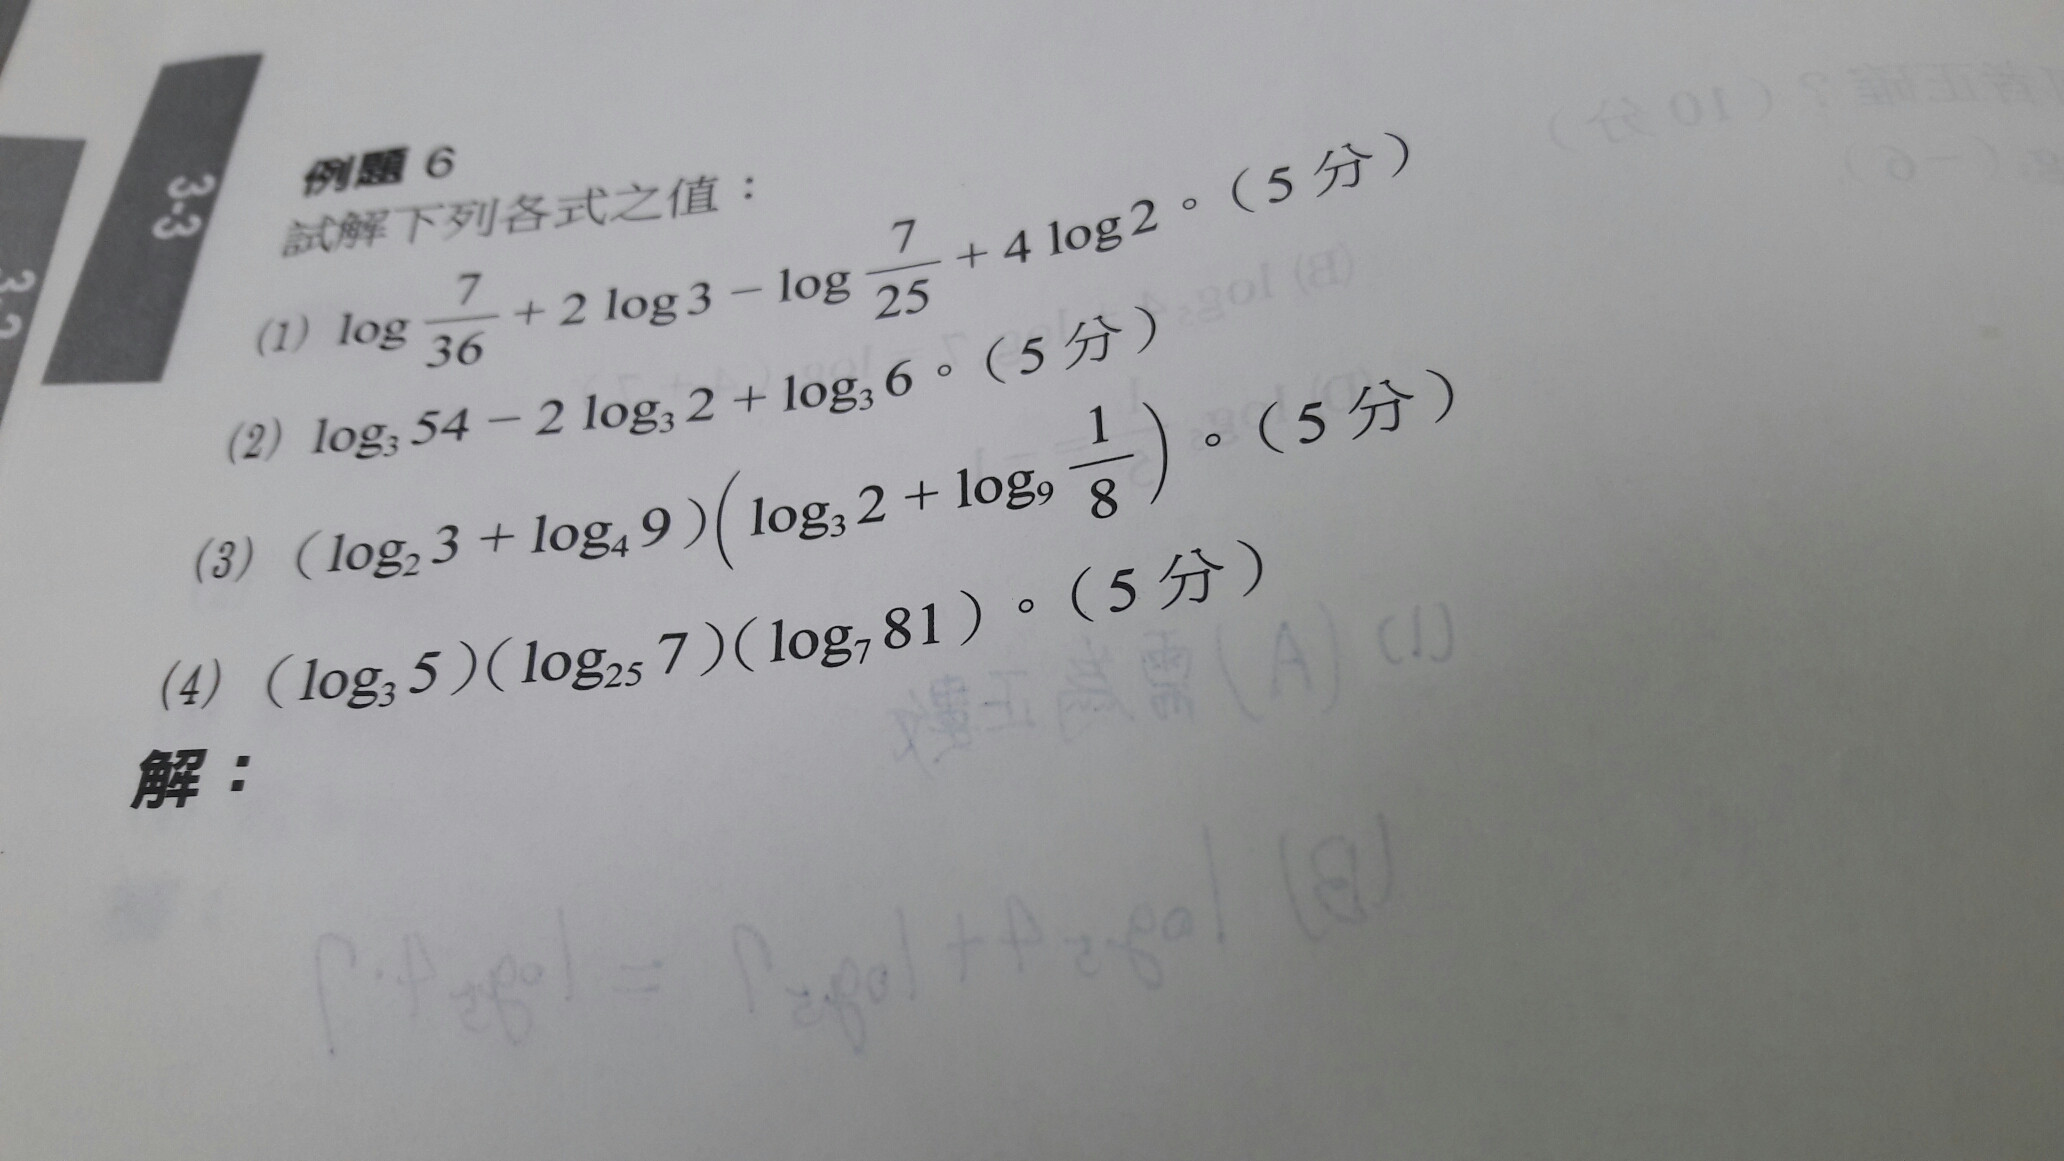 3-3
3-3
例題 6
試解下列各式之值：
(1) log 7/36 + 2 log 3 − log 7/25 + 4 log 2。（5 分）
(2) log₃ 54 − 2 log₃ 2 + log₃ 6。（5 分）
(3) （log₂ 3 + log₄ 9）(log₃ 2 + log₉ 1/8)。（5 分）
(4) （log₃ 5）（log₂₅ 7）（log₇ 81）。（5 分）
解：